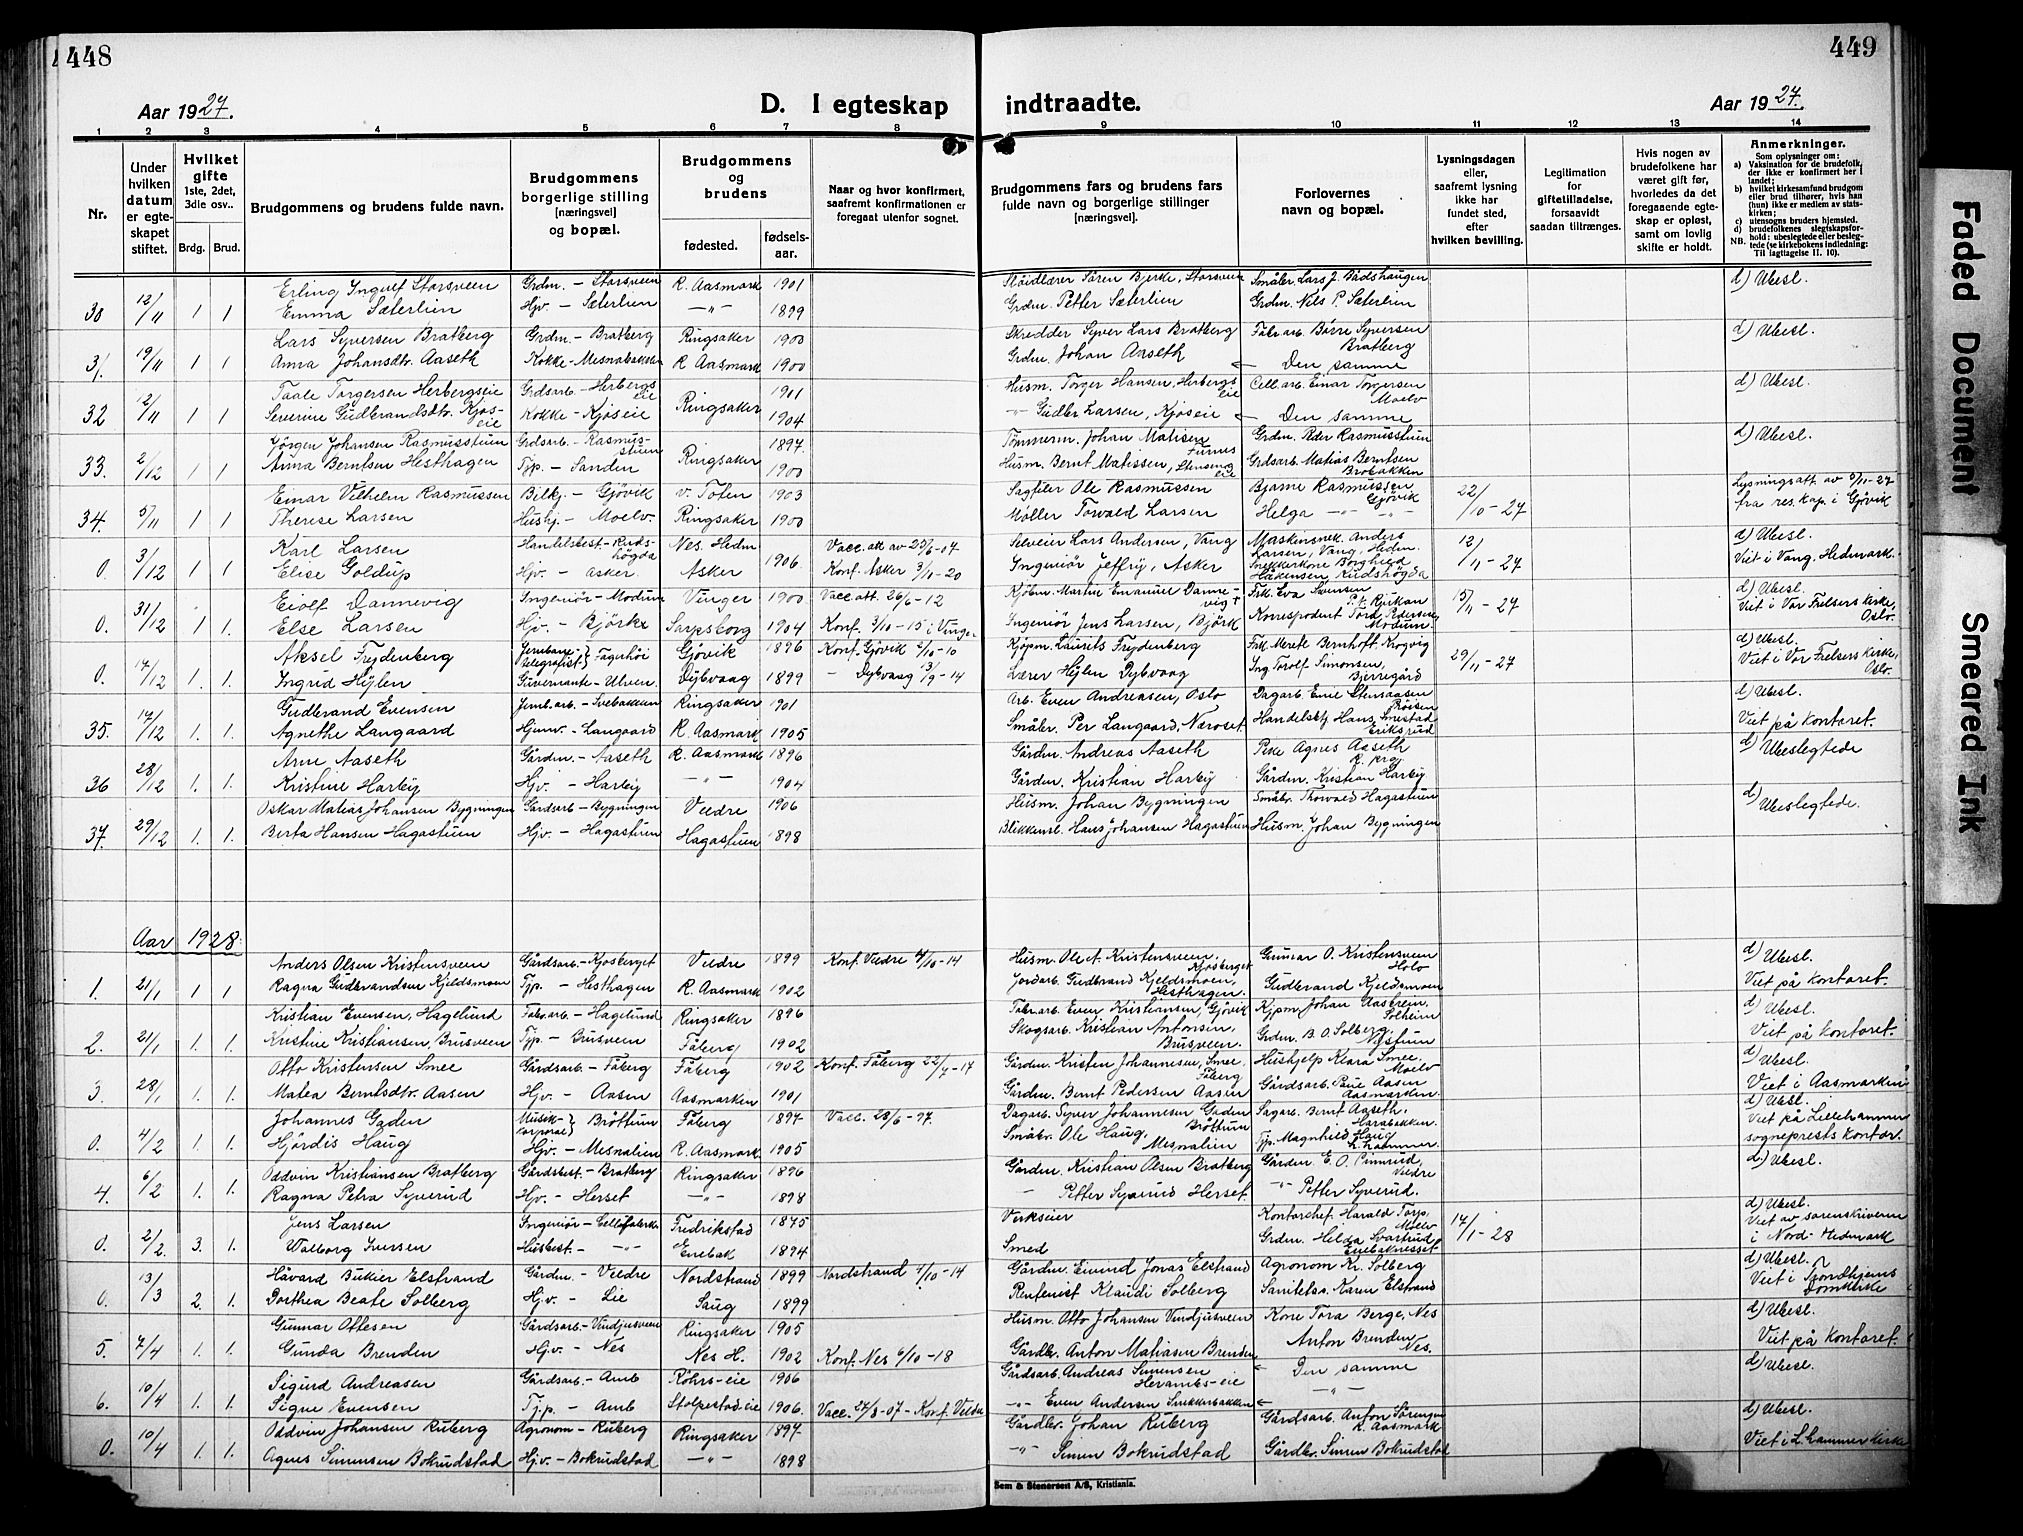 448
Aar 1927.
D. I egteskap
1 2 3 4 5 6 7 8
Nr.
Under hvilken datum er egteskapet stiftet.
Hvilket gifte 1ste, 2det, 3die osv..
Brdg. Brud.
Brudgommens og brudens fulde navn.
Brudgommens borgerlige stilling [næringsvei] og bopæl.
Brudgommens og brudens
fødested.
fødselsaar.
Naar og hvor konfirmert, saafremt konfirmationen er foregaat utenfor sognet.
30 12/11 1 1 Erling Ingulf Storsveen Grdm. - Storsveen R. Aasmark 1901
Emma Sæterlien Hjv. - Sæterlien -"- 1899
31. 19/11 1 1 Lars Syversen Bratberg Grdm. - Bratberg Ringsaker 1900
Anna Johansdtr. Aaseth Kokke - Mesnabakken R Aasmark 1900
32 2/11 1 1 Taale Torgersen Herbergseie Grdsarb. - Herbergseie Ringsaker 1901
Severine Gudbrandsdtr. Kjoseie Kokke - Kjoseie 1904
33. 2/12 1 1 Jörgen Johansen Rasmusstuen Grdsarb. - Rasmusstuen Ringsaker 1897.
Anna Berntsen Hesthagen Tjp. - Sanden 1900
34. 5/11 1 1 Einar Vilhelm Rasmussen Bilkj. - Gjövik v. Toten 1903
Therese Larsen Hushj. - Moelv. Ringsaker 1900
0. 3/12 1 1 Karl Larsen Handelsbest. - Rudshögda Nes. Hedm 1906. Vacc. att. av 25/6-07
Elise Goldup Hjv. - Asker. Asker Konf. Asker 3/10-20
0. 31/12 1 1. Eiolf Dannevig Ingeniör - Modum Vinger 1900 Vacc. att. 26/6-12
Else Larsen Hjv. - Björke Sarpsborg 1904 Konf. 3/10-15 i Vinger
0. 17/12 1. 1. Aksel Frydenberg Jernbanetelegrafist} Fagerhöi Gjövik 1896 Konf. Gjövik 2/10-10
Ingrid Hÿlen Guvernante - Ulven. Dybvaag 1899 - Dybvaag 13/9-14
35. 17/12 1. 1. Gudbrand Evensen Jernb. arb. - Svebakken Ringsaker 1901
Agnethe Langaard Hjemv. - Langaard R. Aasmark 1905
36 28/12 1. 1. Arne Aaseth Gårdm. - Aaseth R. Aasmark 1896
Kristine Harby Hjv. - Harby -"- 1904
37. 29/12 1. 1. Oskar Matias Johansen Bygningen Gardsarb - Bygningen Veldre 1906
Berta Hansen Hagastuen Hjv. - Hagastuen Hagastuen 1898
Aar 1928.
1. 21/1 1 1 Anders Olsen Kristensveen Gårdsarb. - Kjosberget Veldre 1899 Konf. Veldre 4/10-14
Ragna Gudbrandsen Kjeldsmoen Tjp. - Hesthagen R. Aasmark 1902
2. 21/1 1. 1. Kristian Evensen, Hagelund Fabr. arb. - Hagelund Ringsaker 1896
Kristine Kristiansen, Brusveen Tjp. - Brusveen Fåberg 1902
3. 28/1 1. 1. Otto Kristensen Smee Gårdsarb. - Fåberg Fåberg 1902 Konf. Fåberg 22/7-17
Matea Berntsdtr. Aasen Hjv. - Aasen Aasmarken 1901
0. 4/2 1. 1. Johannes Gaden Musik-korporal} Bröttum Fåberg 1897 Vacc. 28/6-97.
Hjördis Haug Hjv. - Mesnalien R. Aasmark 1905
4. 6/2 1. 1. Oddvin Kristiansen Bratberg Gårdsbest. - Bratberg Ringsaker 1896
Ragna Petra Syverud Hjv. - Herset -"- 1898
0. 2/2. 3. 1. Jens Larsen Ingeniör - Cellofabrikk Fredrikstad 1875
Walborg Iversen Husbest. - -"- Enebak 1894
0. 13/3 2. 1. Håvard Bukier Elstrand Gårdm. - Veldre Nordstrand 1899 Nordstrand 4/10-14
Dorthea Beate Solberg Hjv. - Lie Saug 1899
5. 7/4 1. 1. Gunnar Ottesen Gårdsarb. - Vindjusveen Ringsaker 1905
Gunda Brenden Hjv. - Nes Nes H. 1902 Konf. Nes 6/10-18
6. 10/4 1. 1. Sigurd Andreasen Gårdsarb. - Amb Röhrs-eie 1906
Signe Evensen Tj.p. - Amb Stolpestad-eie 1906. Vacc. 27/8-07 - Konf. Veldre
0. 10/4 1. 1. Oddvin Johansen Ruberg Agronom - Ruberg Ringsaker 1897
Agnes Simensen Bokrudstad Hjv. - Bokrudstad -"- 1898
449
indtraadte.
Aar 1927.
9 10 11 12 13 14
Brudgommens fars og brudens fars fulde navn og borgerlige stillinger [næringsvei].
Forlovernes navn og bopæl.
Lysningsdagen eller, saafremt lysning ikke har fundet sted, efter hvilken bevilling.
Legitimation for giftetilladelse, forsaavidt saadan tiltrænges.
Hvis nogen av brudefolkene har været gift før, hvorledes da det foregaaende egteskap er opløst, samt om lovlig skifte er holdt.
Anmerkninger.
Som oplysninger om:
a) Vaksination for de brudefolk, der ikke er konfirmert her i landet;
b) hvilket kirkesamfund brudgom eller brud tilhører, hvis han (hun) ikke er medlem av statskirken;
c) utensogns bruders hjemsted.
d) brudefolkenes slegtskapsforhold: ubeslegtede eller beslegtede (se kirkebokens indledning:
NB. Til iagttagelse II. 10).
Slöidlærer Sören Bjerke, Storsveen Småbr. Lars J. Bådshaugen d) Ubesl.
Grdm. Petter Sæterlien Grdm. Nils P. Sæterlien
Skredder Syver Lars Bratberg Fabr arb. Börre Syversen Bratberg d) Ubesl.
Grdm. Johan Aaseth Den samme
Husm. Torger Hansen, Herbergseie Cell. arb. Einar Torgersen Moelv d) Ubesl.
-"- Gudbr Larsen, Kjoseie Den samme
Tömmerm. Johan Matisen Furnes Grdm. Peder Rasmusstuen d) Ubesl.
Husm. Bernt Matissen, Stensengeie Grdsarb. Matias Berntsen Brobakken
Sagfiler Ole Rasmussen Bjarne Rasmussen Gjövik 22/10-27 Lysningsatt. av 3/11-27
Möller Torvald Larsen Helga -"- -"- fra res. kap. i Gjövik
Selveier Lars Andersen, Vang Maskinsnek. Anders Larsen, Vang, Hedm. 12/11-27 d) Ubesl.
Ingeniör Jeffry, Asker Snekkerkone Borghild Håkensen Rudshögda Viet i Vang, Hedmark.
Kjöbm. Martin Emanuel Dannevig + Frk. Eva Svensen p.t. Rjukan 15/11-27 d) Ubesl.
Ingeniör Jens Larsen, Björk Korrespondent Tord Pedersen Modum Viet i Vor Frelsers kirke, Oslo.
Kjöpm. Laurits Frydenberg Frk. Merete Bernhoft, Krogvig 29/11-27 d) Ubesl.
Lærer Hÿlen Dybvaag Ing. Torolf Simonsen, Bjerregård Viet i Vor Frelsers kirke, Oslo.
Arb. Even Andreasen, Oslo Dagarb. Emil Stensaasen Pröisen d) Ubesl.
Småbr. Per Langaard, Næroset Handelsbtj Hans Smestad Eriksrud Viet på kontoret.
Gårdm. Andreas Aaseth Peke Agnes Aaseth d) Ubeslegtede
Gårdm. Kristian Harby Gårdm. Kristian Harby
Husm. Johan Bygningen Småbr. Thorvald Hagastuen d) Ubeslegtede.
Blikkensl. Hans Johansen Hagastuen Husm. Johan Bygningen
Husm. Ole A. Kristensveen, Kjosberget Gunnar O. Kristensveen Holo d) Ubesl.
Jordarb. Gudbrand Kjeldsmoen, Hesthagen. Gudbrand Kjeldsmoen Viet på kontoret.
Fabr. arb. Even Kristiansen, Gjövik Kjpm. Johan Aasheim Solheim d) Ubesl.
Skogsarb. Kristian Antonsen, Brusveen. Grdm. B. O. Solberg, Nystuen Viet på kontoret.
Gårdm. Kristen Johannesen, Smee. Fåberg Hushjelp Klara Smee. Moelv d) Ubesl.
Gårdm. Bernt Pedersen Aasen Gårdsarb. Paul Aasen Aasmarken Viet i Aasmarken
Dagarb. Syver Johannesen Gaden Bröttum Sagarb. Bernt Aaseth, Harabakken. d) Ubesl.
Småbr. Ole Haug, Mesnalien Tjp. Magnhild Haug L.hammer. Viet på Lillehammer sogneprests kontor.
Gårdm. Kristian Olsen Bratberg Gårdm. E. O. Rimrud, Veldre d.) Ubesl.
- Petter Syverud Herset. -"- Petter Syverud.
Verkseier Kontorchef Harald Torp, Moelv 14/1-28 d) Ubesl.
Smed Grdm. Helda Svartrud Enebakneset Viet av sorenskriveren i Nord-Hedmark
Gårdm. Eivind Jonas Elstrand Agronom Kr. Solberg d) Ubesl.
Rentenist Klaudi Solberg Sanitetss. Karen Elstrand Viet i Trondhjems Domkirke
Husm. Otto Johansen Vindjusveen Kone Tora Berge, Nes d) Ubesl.
Gårdbr. Anton Matiasen Brenden Anton Brenden Nes. Viet på kontoret.
Gårdsarb. Andreas Simensen Herambs-eie Den samme d) Ubesl.
-"- Even Andersen Snekkerbakken -"-
Gårdbr. Johan Ruberg Gårdsarb. Anton Sörensen R. Aasmark d) Ubesl.
-"- Simen Bokrudstad Gårdbr. Simen Bokrudstad Viet i L.hammer kirke
Sem & Stenersen A/S, Kristiania.
Faded Document
Smeared Ink